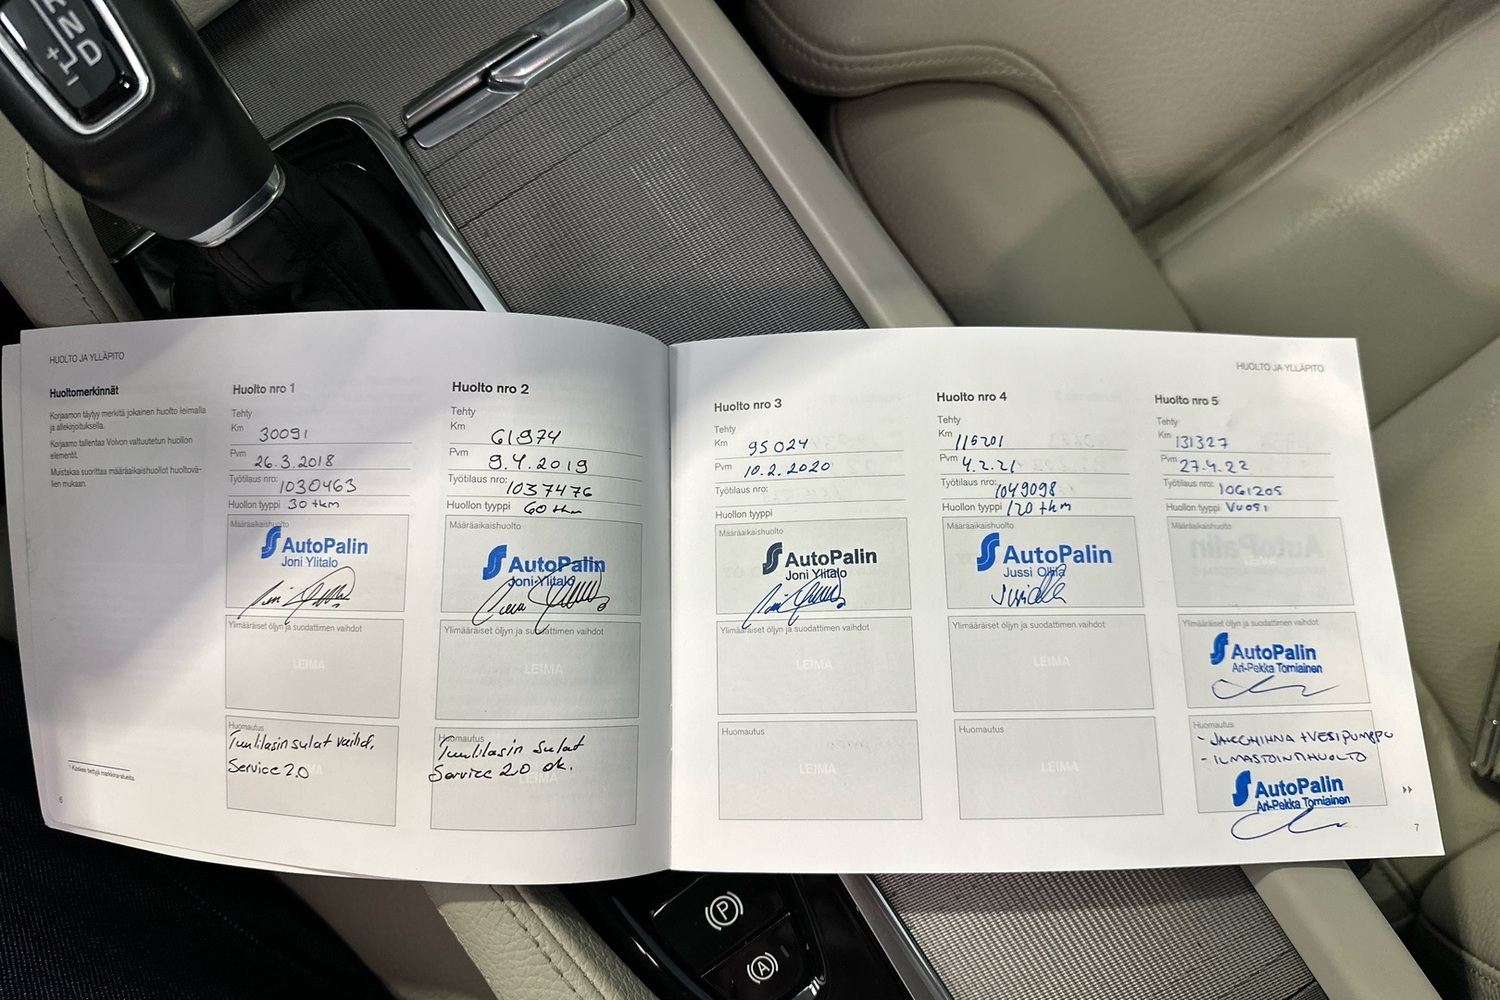 R
N
D
+
-
HUOLTO JA YLLÄPITO
Huoltomerkinnät
Korjaamon täytyy merkitä jokainen huolto leimalla
ja allekirjoituksella.
Korjaamo tallentaa Volvon valtuutetun huollon
elementit.
Muistakaa suorittaa määräaikaishuollot huoltovä-
lien mukaan.
6
Huolto nro 1
Tehty
Km 30091
Pvm 26.3.2018
Työtilaus nro: 1030463
Huollon tyyppi 30 tkm
Määräaikaishuolto
AutoPalin
Joni Ylitalo
Ylimääräiset öljyn ja suodattimen vaihdot
LEIMA
Huomautus
Tuulilasin sulat vaihd.
Service 2.0
Huolto nro 2
Tehty
Km 61974
Pvm 9.4.2019
Työtilaus nro: 1037476
Huollon tyyppi 60 tkm
Määräaikaishuolto
AutoPalin
Joni Ylitalo
Ylimääräiset öljyn ja suodattimen vaihdot
LEIMA
Huomautus
Tuulilasin sulat
Service 2.0 ok.
HUOLTO JA YLLÄPITO
Huolto nro 3
Tehty
Km 95024
Pvm 10.2.2020
Työtilaus nro:
Huollon tyyppi
Määräaikaishuolto
AutoPalin
Joni Ylitalo
Ylimääräiset öljyn ja suodattimen vaihdot
LEIMA
Huomautus
LEIMA
Huolto nro 4
Tehty
Km 115201
Pvm 4.2.21
Työtilaus nro: 1049098
Huollon tyyppi 120 tkm
Määräaikaishuolto
AutoPalin
Jussi Ollila
Ylimääräiset öljyn ja suodattimen vaihdot
LEIMA
Huomautus
LEIMA
Huolto nro 5
Tehty
Km 131327
Pvm 27.4.22
Työtilaus nro: 1061205
Huollon tyyppi VUOSI
Määräaikaishuolto
Ylimääräiset öljyn ja suodattimen vaihdot
AutoPalin
Ari-Pekka Torniainen
Huomautus
- JAKOHIHNA + VESIPUMPPU
- ILMASTOINTIHUOLTO
AutoPalin
Ari-Pekka Torniainen
7
P
A